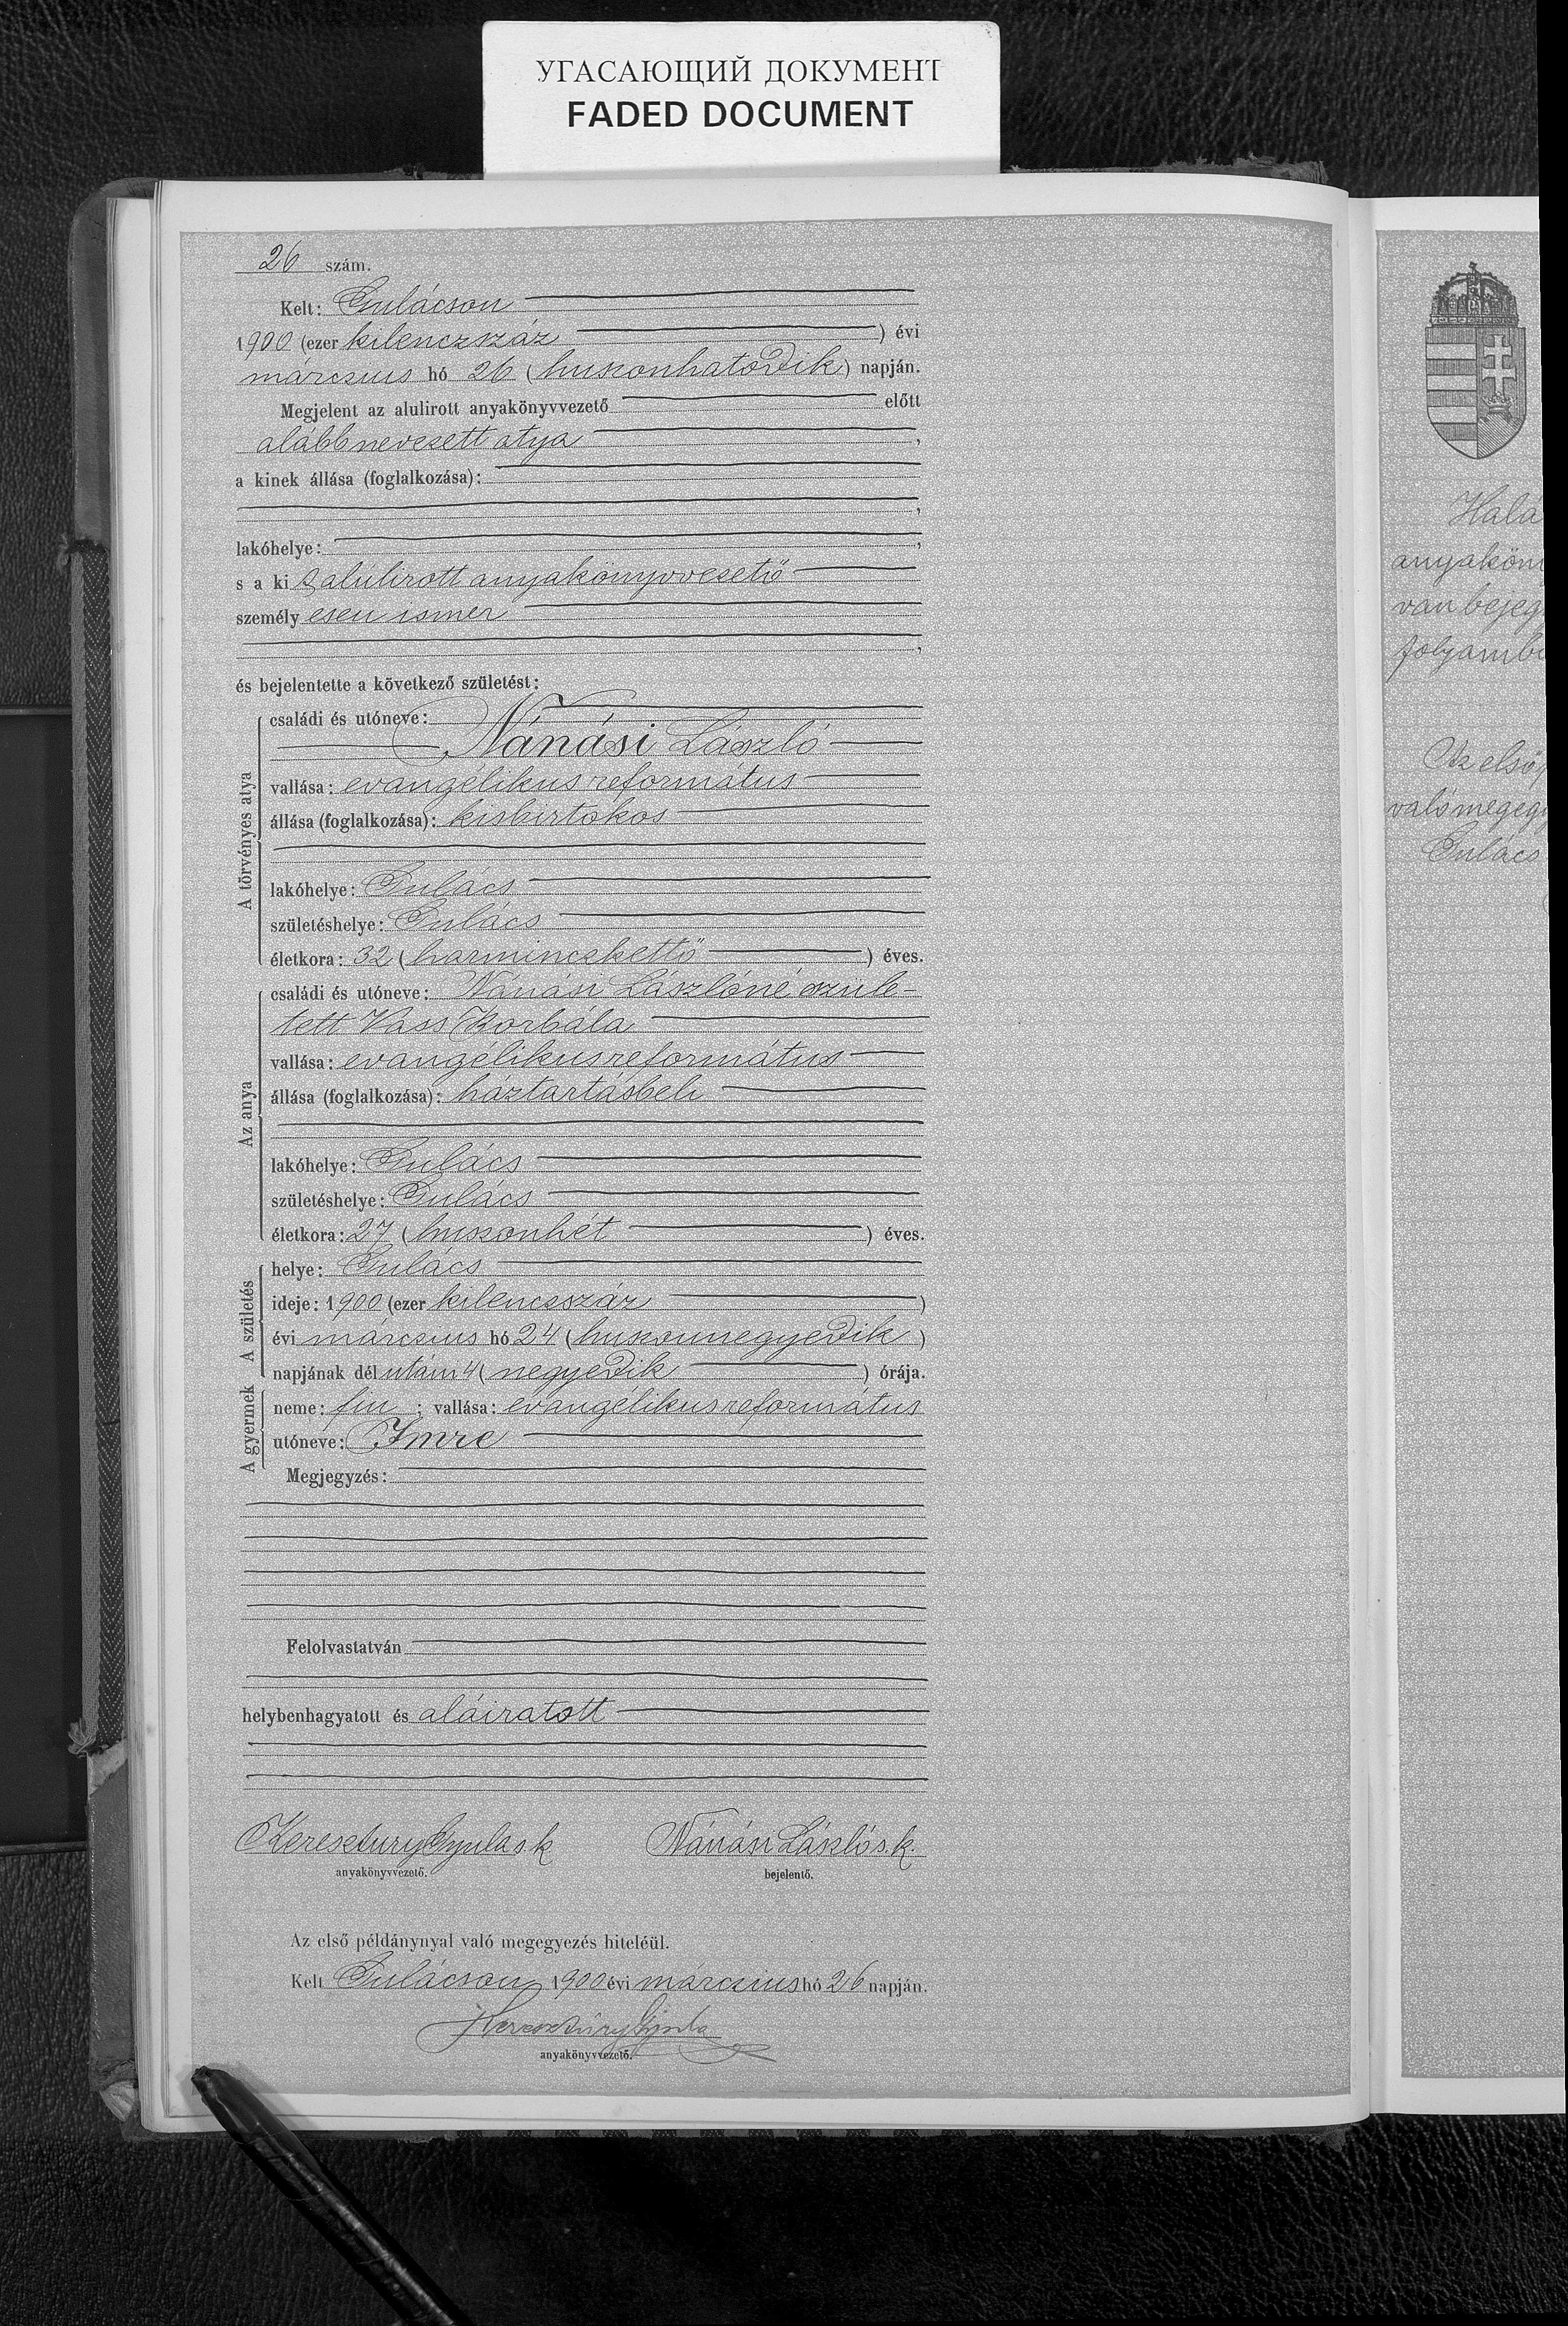 УГАСАЮЩИЙ ДОКУМЕНТ
FADED DOCUMENT
26 szám.
Kelt: Gulácson
1900 (ezer kilenczszáz ) évi
márczius hó 26 (huszonhatodik) napján.
Megjelent az alulirott anyakönyvvezető előtt
alábbnevezett atya ,
a kinek állása (foglalkozása):
,
lakóhelye: ,
s a kit alúlirott anyakönyvvezető
személy esen ismer
,
és bejelentette a következő születést:
A törvényes atya
családi és utóneve:
Nánási László
vallása: evangélikus református
állása (foglalkozása): kisbirtokos
lakóhelye: Gulács
születéshelye: Gulács
életkora: 32 (harminczkettő ) éves.
Az anya
családi és utóneve: Nánási Lászlóné szüle-
tett Vass Borbála
vallása: evangélikus református
állása (foglalkozása): háztartásbeli
lakóhelye: Gulács
születéshelye: Gulács
életkora: 27 (huszonhét ) éves.
A születés
helye: Gulács
ideje: 1900 (ezer kilenczszáz )
évi márczius hó 24 (huszonnegyedik )
napjának dél után 4 (negyedik ) órája.
A gyermek
neme: fiu ; vallása: evangélikus református
utóneve: Imre
Megjegyzés:
Felolvastatván
helybenhagyatott és aláiratott
Keresztury Gyula s.k. Nánási László s.k.
anyakönyvvezető. bejelentő.
Az első példánynyal való megegyezés hiteléül.
Kelt Gulácson 1900 évi márczius hó 26 napján.
Keresztúry Gyula
anyakönyvvezető.
Halá
anyaköny
van bejegy
folyamb
Az első p
való megegy
Gulács